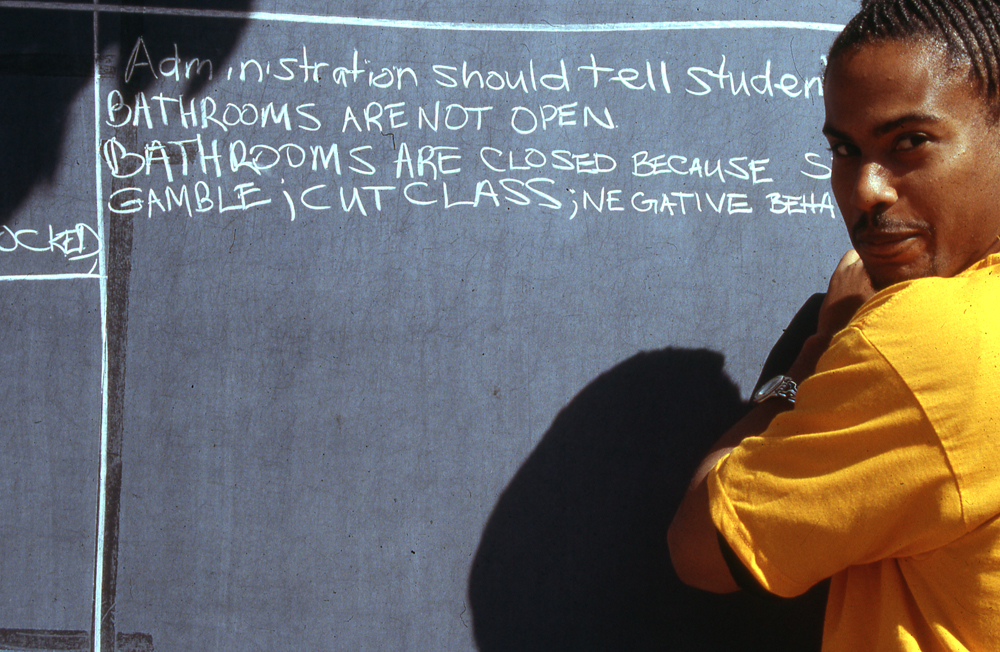 Administration should tell studen
BATHROOMS ARE NOT OPEN.
BATHROOMS ARE CLOSED BECAUSE S
GAMBLE; CUT CLASS; NEGATIVE BEHA
OCKED